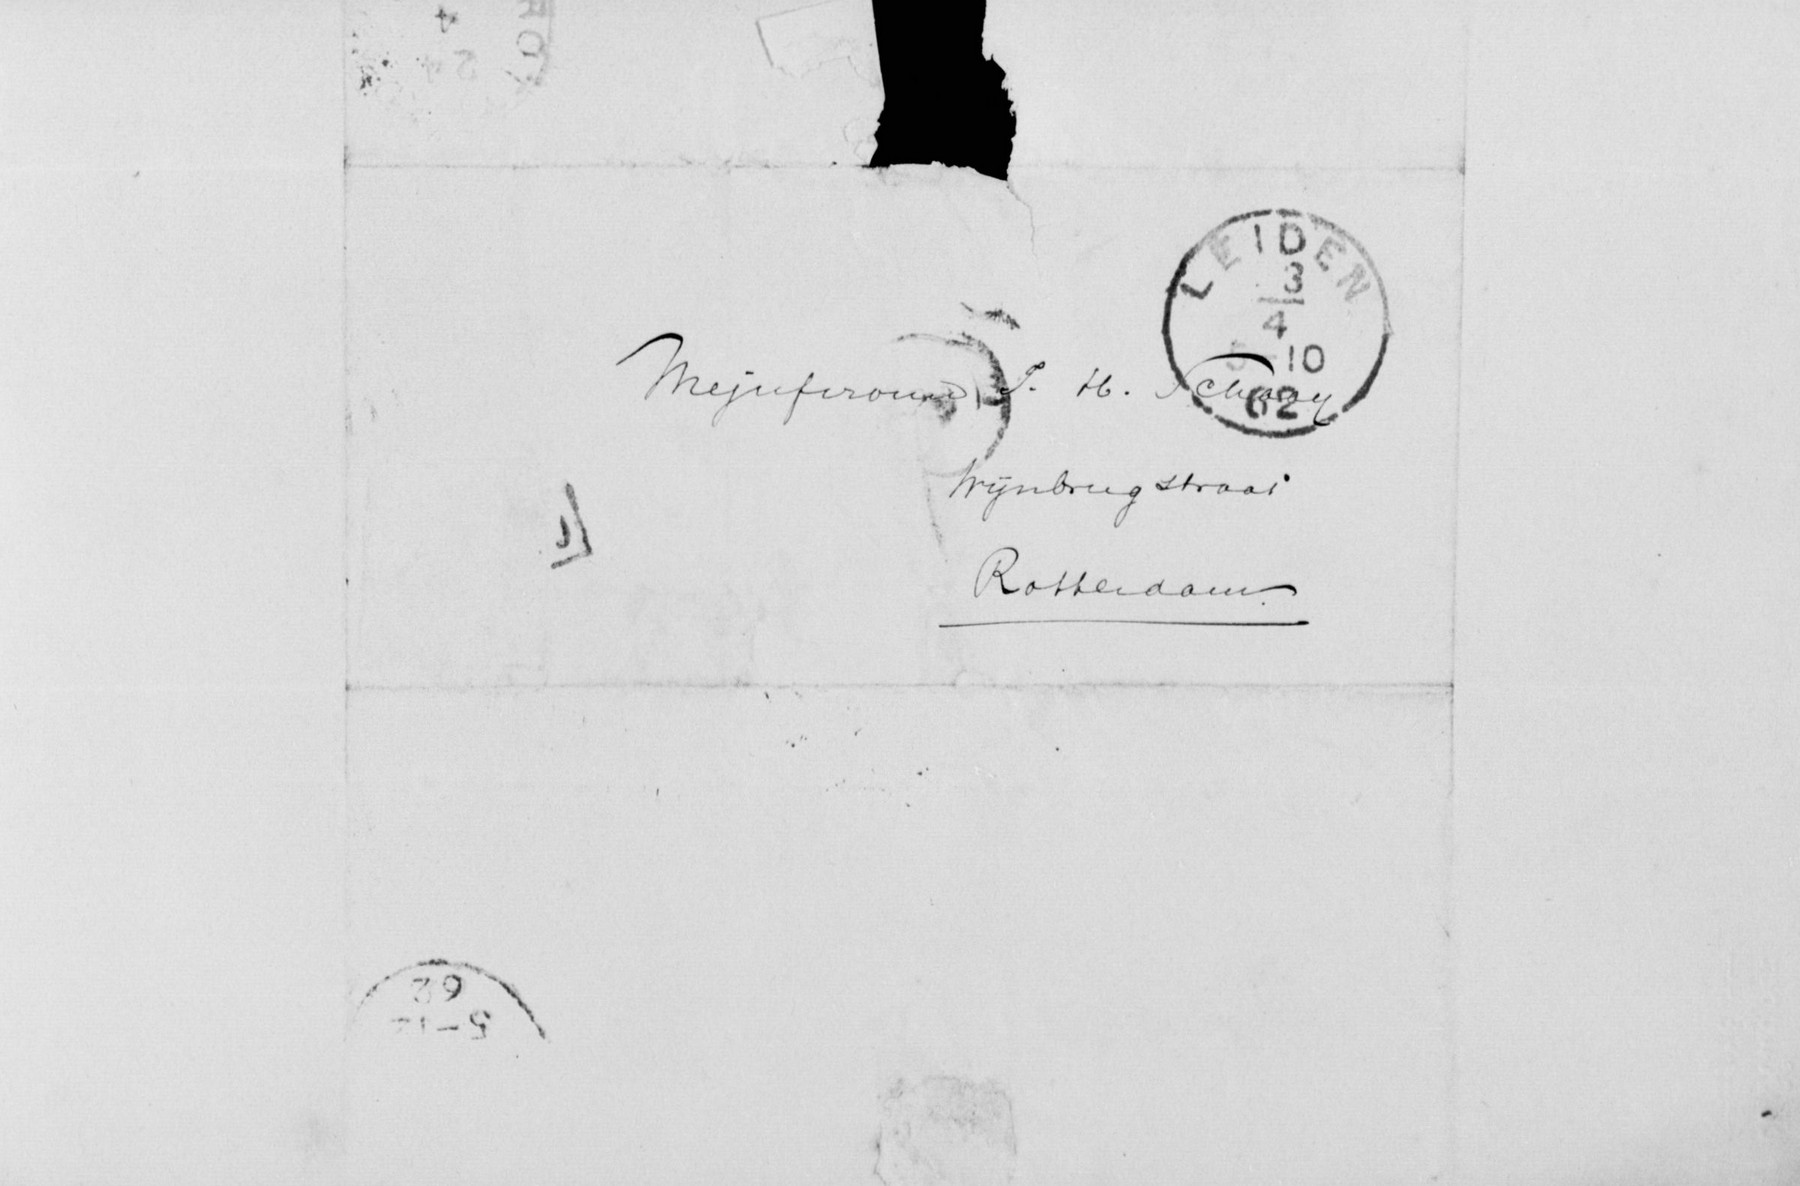 LEIDEN
3
4
5-10
62
Mejufvrouw S. H. Schaay
Wijnbrugstraat
Rotterdam.
62